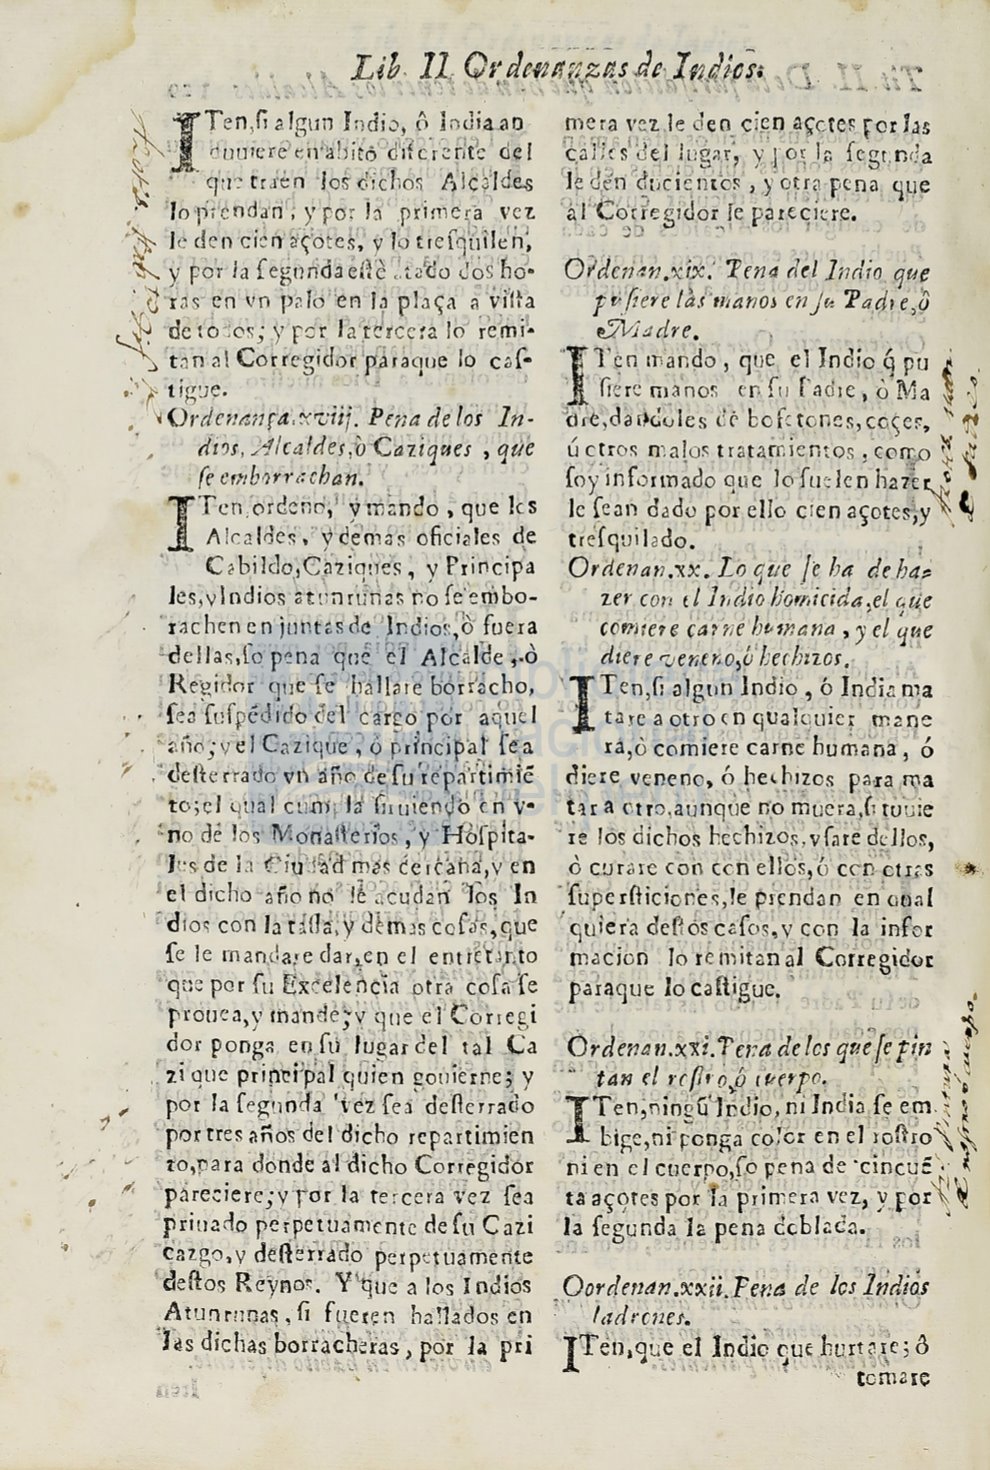 Lib. II Ordenanzas de Indios.
ITen, si algun Indio, ô India an
duuiere en abito diferente del
que traen los dichos Alcaldes
lo prendan, y por la primera vez
le den cien açotes, y lo tresquilen,
y por la segunda estè atado dos ho-
ras en vn palo en la plaça a vista
de todos; y por la tercera lo remi-
tan al Corregidor paraque lo cas-
tigue.
Ordenança.xviij. Pena de los In-
dios, Alcaldes, ò Caziques, que
se emborrachan.
ITen, ordeno, y mando, que los
Alcaldes, y demas oficiales de
Cabildo, Caziques, y Principa
les, y Indios atunrunas no se embo-
rachen en juntas de Indios, ò fuera
dellas, so pena que el Alcalde, ò
Regidor que se hallare borracho,
sea suspēdido del cargo por aquel
año; y el Cazique, ò principal sea
desterrado vn año de su repartimiē
to; el qual cumpla siruiendo en v-
no de los Monasterios, y Hospita-
les de la Ciudad mas cercana, y en
el dicho año no le acudan los In
dios con la tassa, y demas cosas, que
se le mandare dar, en el entretanto
que por su Excelencia otra cosa se
prouea, y mande; y que el Corregi
dor ponga en su lugar del tal Ca
zique principal quien gouierne; y
por la segunda vez sea desterrado
por tres años del dicho repartimien
to, para donde al dicho Corregidor
pareciere; y por la tercera vez sea
priuado perpetuamente de su Cazi
cazgo, y desterrado perpetuamente
destos Reynos. Y que a los Indios
Atunrunas, si fueren hallados en
las dichas borracheras, por la pri
mera vez le den cien açotes por las
calles del lugar, y por la segunda
le den ducientos, y otra pena que
al Corregidor le pareciere.
Ordenan.xix. Pena del Indio que
pusiere las manos en su Padre, ò
Madre.
ITen mando, que el Indio q̃ pu
siere manos en su Padre, ò Ma
dre, dandoles de bofetones, coçes,
ú otros malos tratamientos, como
soy informado que lo suelen hazer
le sean dado por ello cien açotes, y
tresquilado.
Ordenan.xx. Lo que se ha de ha-
zer con el Indio homicida, el que
comiere carne humana, y el que
diere veneno, ó hechizos.
ITen, si algun Indio, ó India ma
tare a otro en qualquier mane
ra, ò comiere carne humana, ó
diere veneno, ó hechizos para ma
tar a otro, aunque no muera, si tuuie
re los dichos hechizos, vsare dellos,
ò curare con con ellos, ó con otras
supersticiones, le prendan en qual
quiera destos casos, y con la infor
macion lo remitan al Corregidor
paraque lo castigue.
Ordenan.xxi. Pena de los que se pin
tan el rostro, ó cuerpo.
ITen, ningũ Indio, ni India se em
bige, ni ponga color en el rostro
ni en el cuerpo, so pena de cincuē
ta açotes por la primera vez, y por
la segunda la pena doblada.
Oordenan.xxii. Pena de los Indios
ladrones.
ITen, que el Indio que hurtare; ô
tomare